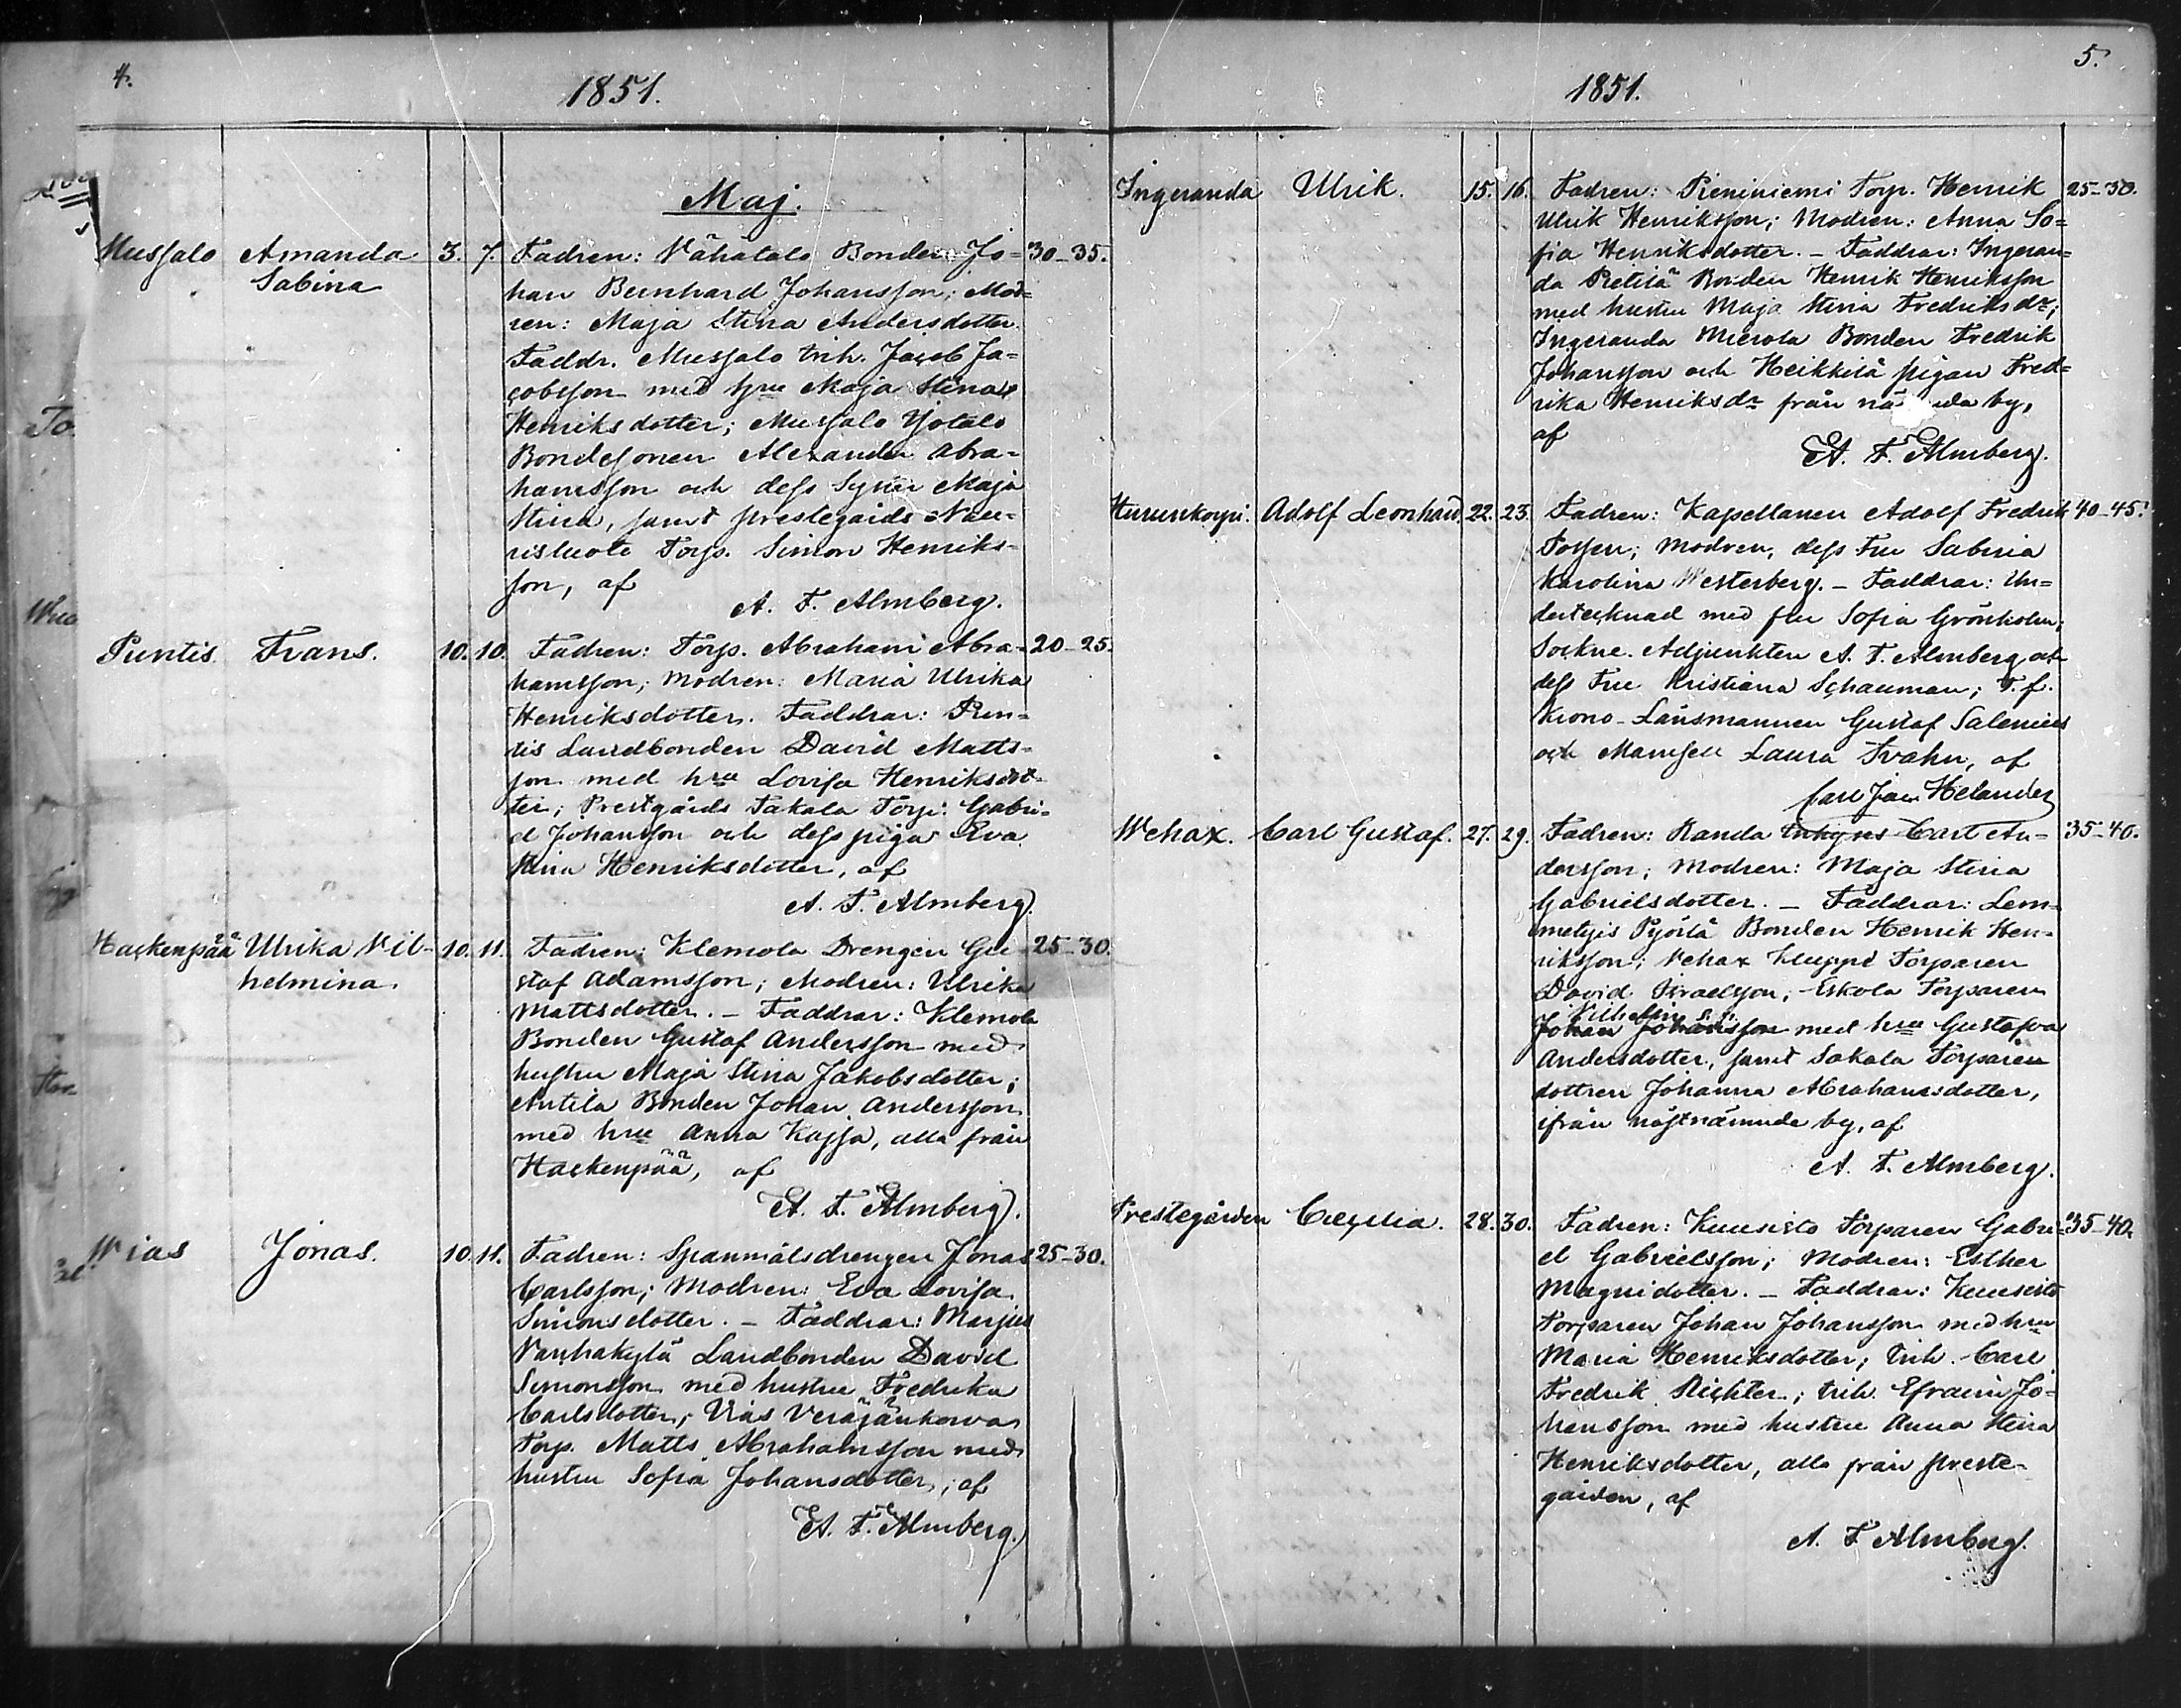 4.
1851.
Maj.
Mussalo Amanda 3. 7. Fadren: Vähätalo Bonden Jo= 30-35.
Sabina han Bernhard Johansson; Mod=
ren: Maja Stina Andersdotter.
Faddr. Mussalo inh. Jacob Ja=
cobsson med hru Maja Stina
Henriksdotter; Mussalo Yotalo
Bondesonen Alexander Abra=
hamsson och dess Syster Maja
Stina, samt prestegårds Nau=
risluoto Torp. Simon Henriks=
son, af
A. F. Almberg.
Puntis. Frans. 10. 10. Fadren: Torp. Abraham Abra- 20-25.
hamsson; Modren: Maria Ulrika
Henriksdotter. Faddrar: Pun=
tis Landbonden David Matts=
son med hru Lovisa Henriksdot=
ter; Prestgårds Takala Torp: Gabri=
el Johansson och dess piga Eva
Stina Henriksdotter, af
A. F. Almberg.
Hackenpää Ulrika Vil- 10. 11. Fadren: Klemola Drengen Gu- 25-30.
helmina. staf Adamsson; Modren: Ulrika
Mattsdotter. - Faddrar: Klemola
Bonden Gustaf Andersson med
hustru Maja Stina Jakobsdotter;
Antila Bonden Johan Andersson
med hru Anna Kajsa, alla från
Hackenpää, af
A. F. Almberg.
Wias Jonas. 10. 11. Fadren: Spanmålsdrengen Jonas 25-30.
Carlsson; Modren: Eva Lovisa
Simonsdotter. - Faddrar: Marjus
Vanhakylä Landbonden David
Simonsson med hustru Fredrika
Carlsdotter; Vias Veräjänkorva
Torp. Matts Abrahamsson med
hustru Sofia Johansdotter, af
A. F. Almberg.
5.
1851.
Ingeranda Ulrik. 15. 16. Fadren: Pieniniemi Torp. Henrik 25-30.
Ulrik Henriksson; Modren: Anna So=
fia Henriksdotter. - Faddrar: Ingeran=
da Pietilä Bonden Henrik Henriksson
med hustru Maja Stina Fredriksdr;
Ingeranda Mierola Bonden Fredrik
Johansson och Heikkilä pigan Fred=
rika Henriksdr från by,
af
A. F. Almberg.
Hurunkorpi. Adolf Leonhard 22. 23. Fadren: Kapellanen Adolf Fredrik 40-45.
Modren, dess Fru Sabina
Karolina Westerberg. - Faddrar: Un=
dertecknad med fru Sofia Grönholm;
Sockne. Adjunkten A. F. Almberg och
dess Fru Kristiana Schauman; T. f.
Krono-Länsmannen Gustaf Salenius
och Mamsell Laura Svahn, af
Carl Jac. Helander
Wehax. Carl Gustaf. 27. 29. Fadren: Randa Inhyses Carl An- 35-40.
dersson; Modren: Maja Stina
Gabrielsdotter. - Faddrar: Lem=
metyis Pyörlä Bonden Henrik Hen=
riksson; Vehax Kluppi Torparen
David Israelsson; Eskola Torparen
Vilhelm s. s.
Johan Johansson med hru Gustafva
Andersdotter, samt Sakala Torpare
dottren Johanna Abrahamsdotter,
ifrån nästnämnde by, af
A. F. Almberg.
Prestegården Cecilia. 28. 30. Fadren: Kuusisto Torparen Gabri- 35-40.
el Gabrielsson; Modren: Esther
Magnidotter. - Faddrar: Kuusisto
Torparen Johan Johansson med hru
Maria Henriksdotter; Inh. Carl
Fredrik Richter; inh. Efraim Jo=
hansson med hustru Anna Stina
Henriksdotter, alla från preste-
gården, af
A. F. Almberg.